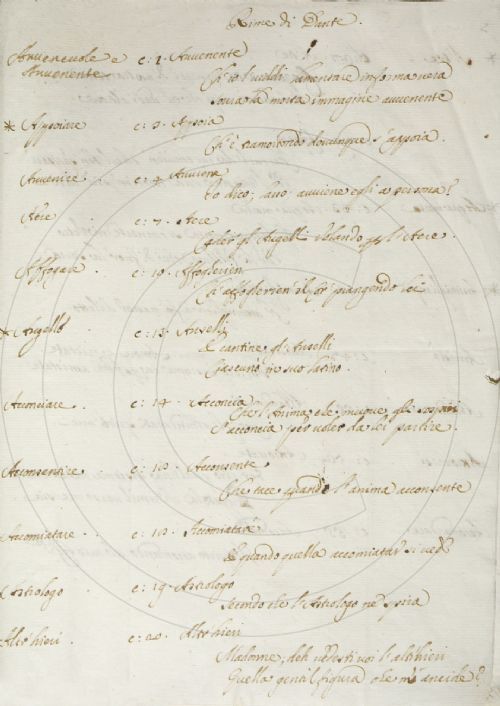 Rime di Dante.
Avvenevole e c: 2. Avvenente
Avvenente
Ch'io la viddi lamentare in forma vera
sovra la morta immagine avvenente
* Appoiare c: 3. Appoia
Ch'è tramortendo dovunque s'appoia.
Avvenire c: 4. Avviene
Io dico; avviene egli a persona?
Aere c: 7. Aere
Cader gl'Augelli volando per l'Aere.
Affogare. c: 10. Affogherien
Ch'affogherien il cor piangendo lei
* Augello c: 13. Auselli
E cantine gl'Auselli
Ciascuno in suo latino.
Acconciare. c: 14. Acconcia
Che l'Anima che muove gli sospiri
S'acconcia per voler da lei partire.
Acconsentire c: 10. Acconsente
Che tace quando l'anima acconsente
Accomiatare. c: 10. Accomiatare
E quando quella accomiatar si vede
Astrologo c: 19. Astrologo
secondo che l'Astrologo
Altr'hieri. c: 20. Altr'hieri
Madonne, deh vedesti voi l'altr'hieri
Quella gentil figura che m'ancide?